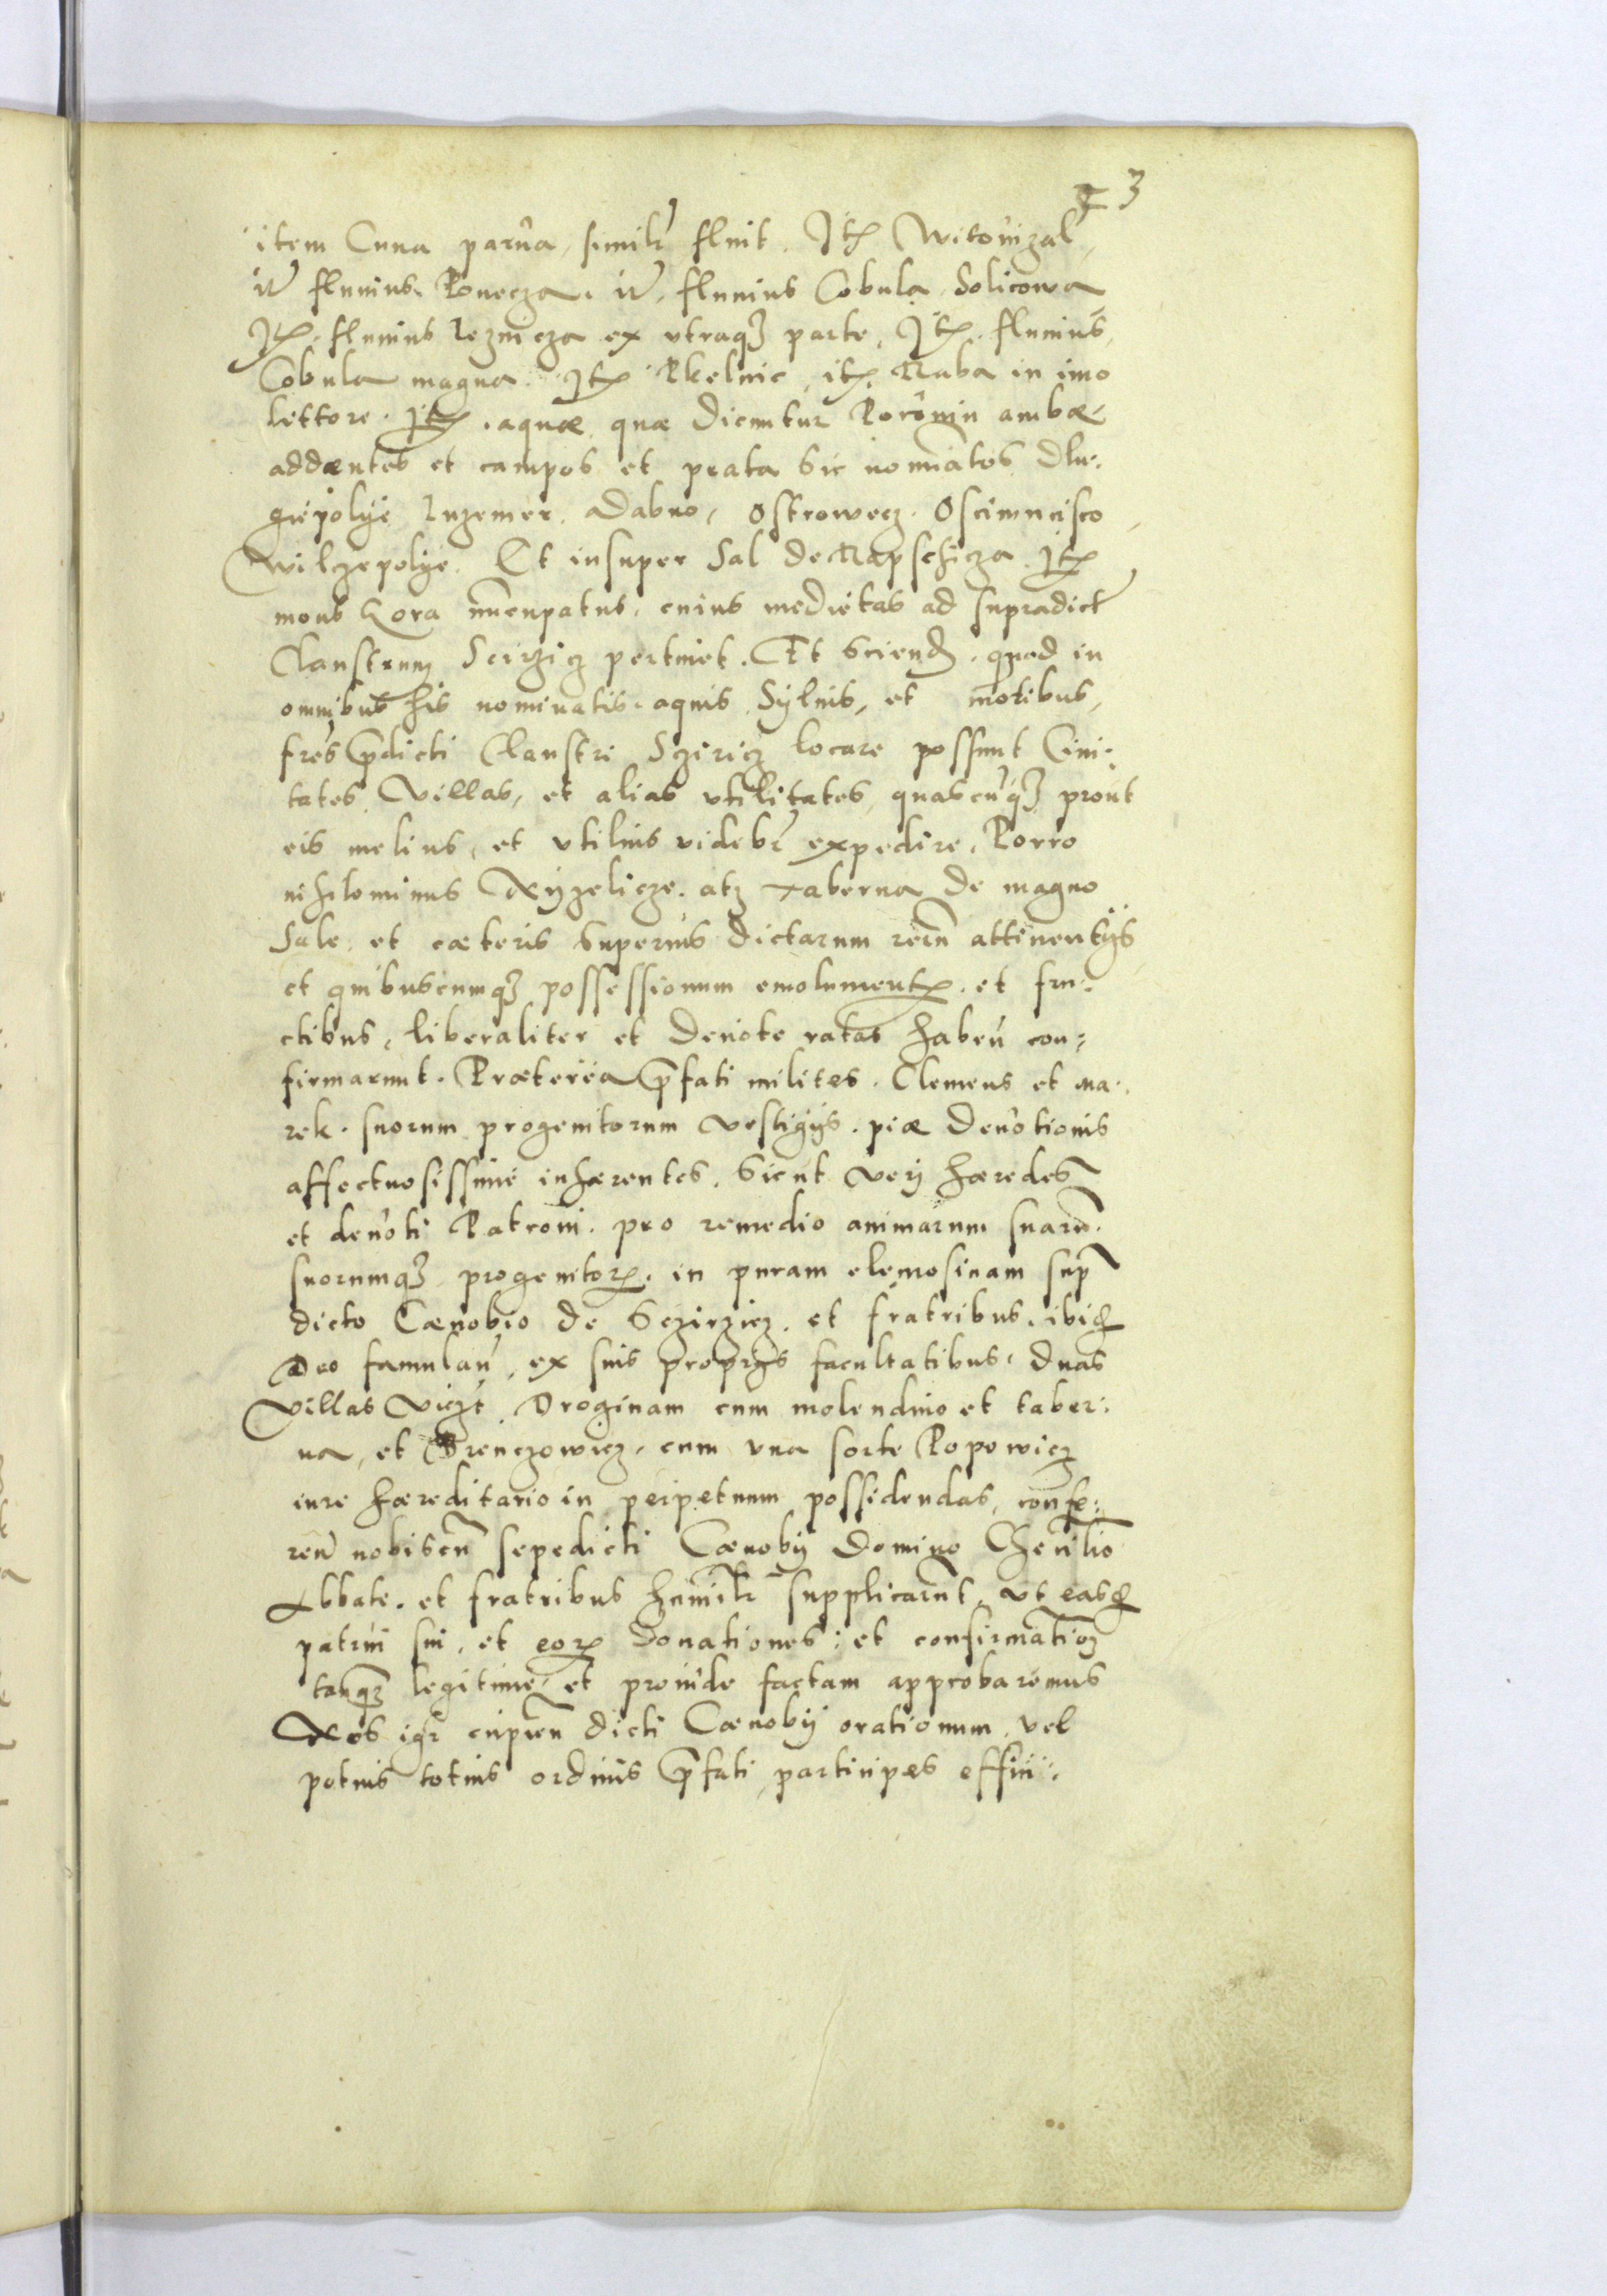 3
item Cuna parua, simil'r fluit. Itē Witouizal,
it' fluuius. Ponecza. it', fluuius Cobula Solicowa
Itē. fluuius leznicza ex vtraq3 parte, Itē. fluuius,
Cobula magna. Itē Rkelnic, itē. Raba in imo
littore. Itē. aquæ, quæ dicuntur Poronin ambæ
addentes et campos et prata sic nom̄iatos dlu:
giepolÿe luzemer. Dabno, Ostrowecz. Osciminscisco
Wilczepolÿe. Et insuper Sal de Rapschicza. Itē
mons Kora nūcupatus. cuius medietas ad supradict'
Claustrum Scirzicz pertinet. Et sciend. quod in
omnibus his nominatis aquis. Syluis, et mōtibus,
fr̄es p̄dicti Claustri Sciricz locare possunt Ciui:
tates, Villas, et alias vtilitates, quascūq3 prout
eis melius, et vtilius videbr̄ expedire, Porro
nihilominus Xyzelicze. atq taberna de magno
Sale. et cæteris superius dictarum rerū attinentijs
et quibuscumq3 possessionum emolumentē. et fru:
ctibus, liberaliter et deuote ratas haben̄ con:
firmarunt. Præterea p̄fati milites. Clemens et Ma:
rek. suorum progenitorum vestigijs. piæ deuotionis
affectuosissime inhærentes. Sicut veij hæredes
et deuoti Patroni. pro remedio animarum suarū.
suorumq3 progenitorē. in puram elemosinam sup̄
dicto Cænobio de Sczirzicz. et fratribus. ibid
Deo famulan̄, ex suis proprijs facultatibus. duas
Villas viczt Droginam cum molendino et taber:
na, et Brenczowicz. cum vna sorte Popowicz
iure hæreditario in perpetuum possidendas, confe:
ren̄ nobiscū sepedicti Cænobij Domino Thecl̄io
Abbate. et fratribus humil'r supplicarūt, vt easd
patrui sui, et eorē donationes: et confirmationē
tanq3 legitime et prouide factam approbaremus
Nos igr̄ cupien̄ dicti Cænobij orationum, vel
potius totius ordinis p̄fati, participes effici: